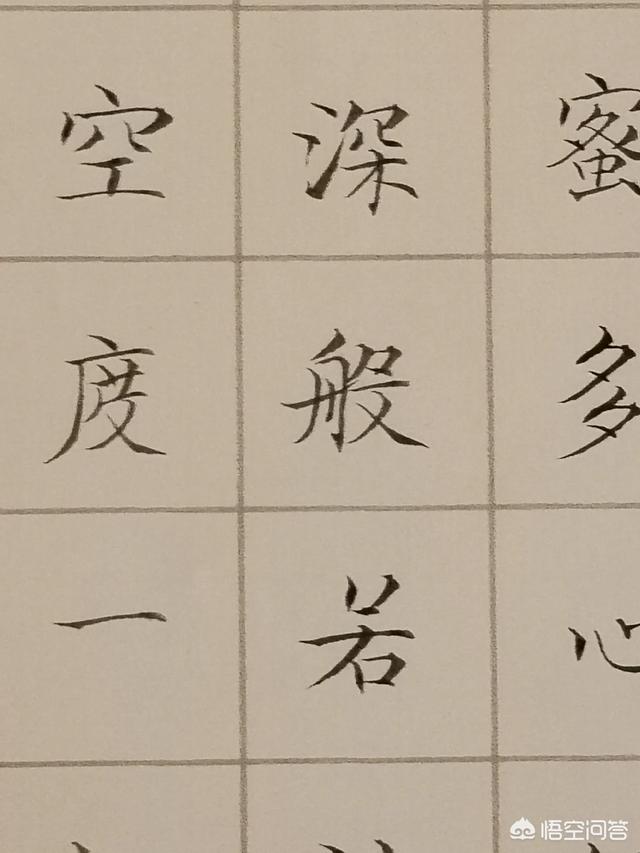 蜜多心
深般若
空度一
悟空问答